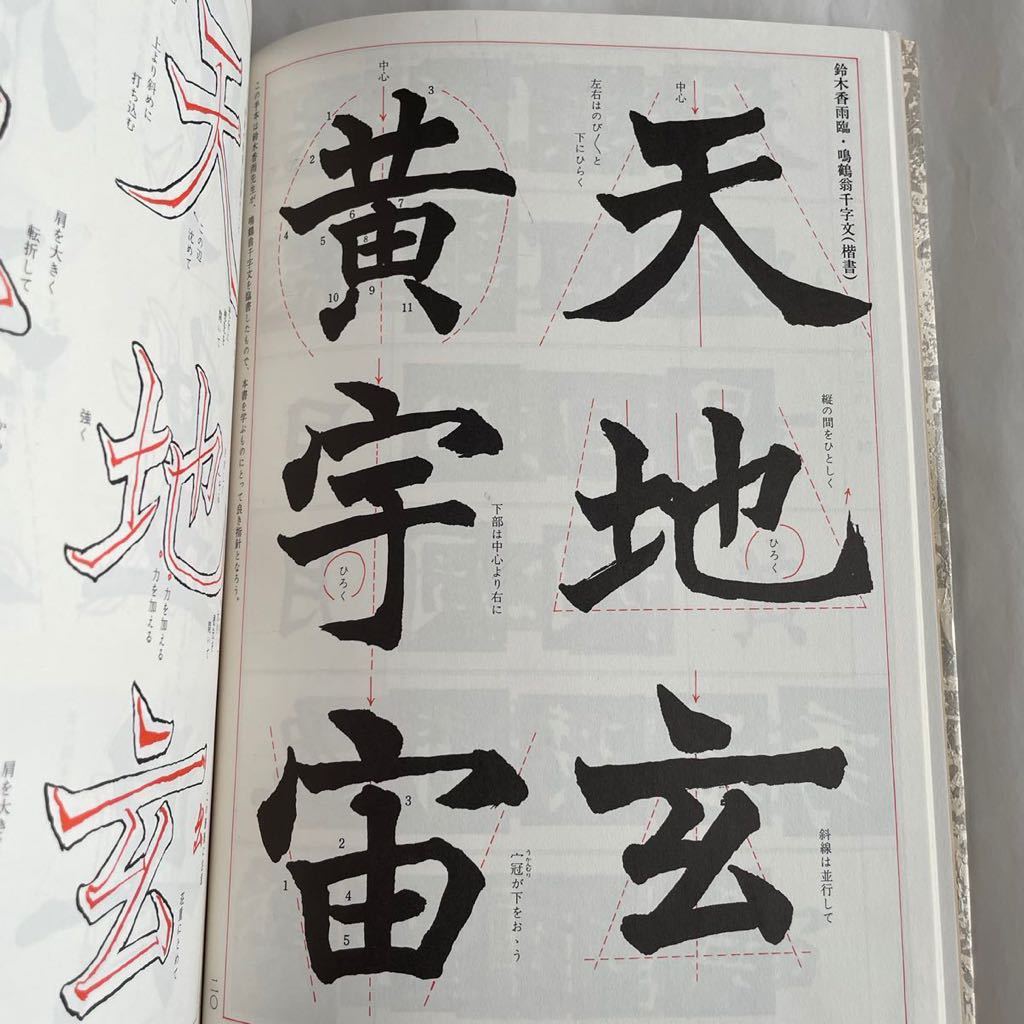 鈴木香雨臨・鳴鶴翁千字文(楷書)
中心
天
左右はのび〳〵と
下にひらく
縦の間をひとしく
地
ひろく
斜線は並行して
玄
中心
黄
1
2
3
4
5
6
7
8
9
10
11
下部は中心より右に
宇
ひろく
宀冠が下をおゝう
うかんむり
宙
1
2
3
4
5
この手本は鈴木香雨先生が、鳴鶴翁千字文を臨書したもので、本書を学ぶものにとって良き指針となろう。
二〇
天
地
玄
上より斜めに
打ち込む
この辺
沈めて
肩を大きく
転折して
強く
力を加える
力を加える
肩を大き